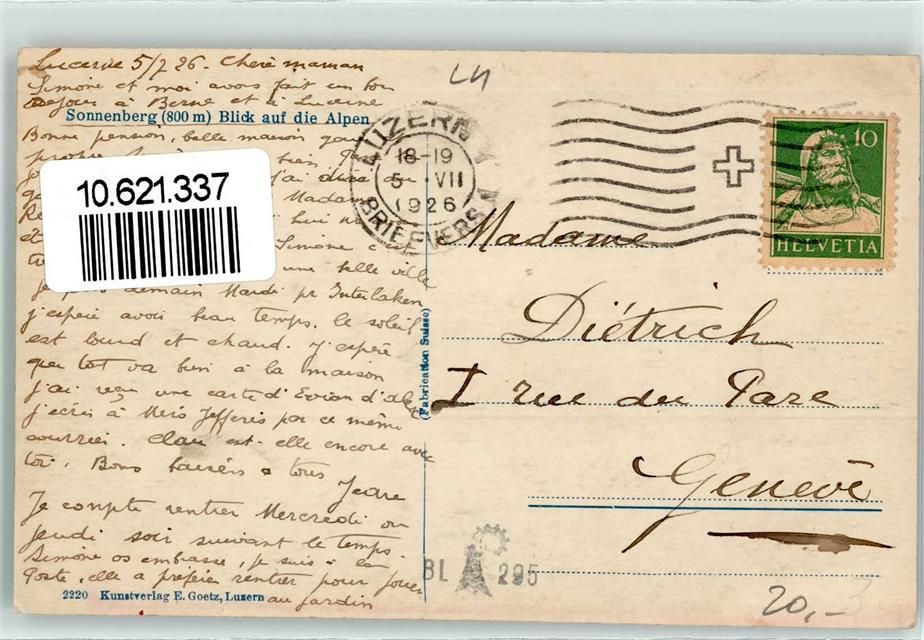 Lucerne 5/7 26. Chère maman
Simone et moi avons fait un bon
séjour à Berne et à Lucerne
Sonnenberg (800 m) Blick auf die Alpen
Bonne pension, belle maison
propre bien
j'ai
Madame
Simone c'est
une belle ville
demain Mardi pr Interlaken
j'espère avoir beau temps. le soleil
est lourd et chaud. J'espère
que tot va bien à la maison
j'ai reçu une carte d'Evian d'
j'écris à Miss Jefferis par ce même
courrier. est-elle encore avec
toi. Bons baisers à tous
Je compte rentrer Mercredi ou
jeudi soir suivant le temps.
Simone os embrasse, je suis à la
Poste, elle a préféré rentrer pour jouer
au jardin
2220 Kunstverlag E. Goetz, Luzern
10.621.337
LUZERN 1
18-19
5. VII
1926
BRIEFVERS.
10
HELVETIA
(Fabrication Suisse)
Madame
Diétrich
1 rue du Parc
Genève
BL 295
20,-